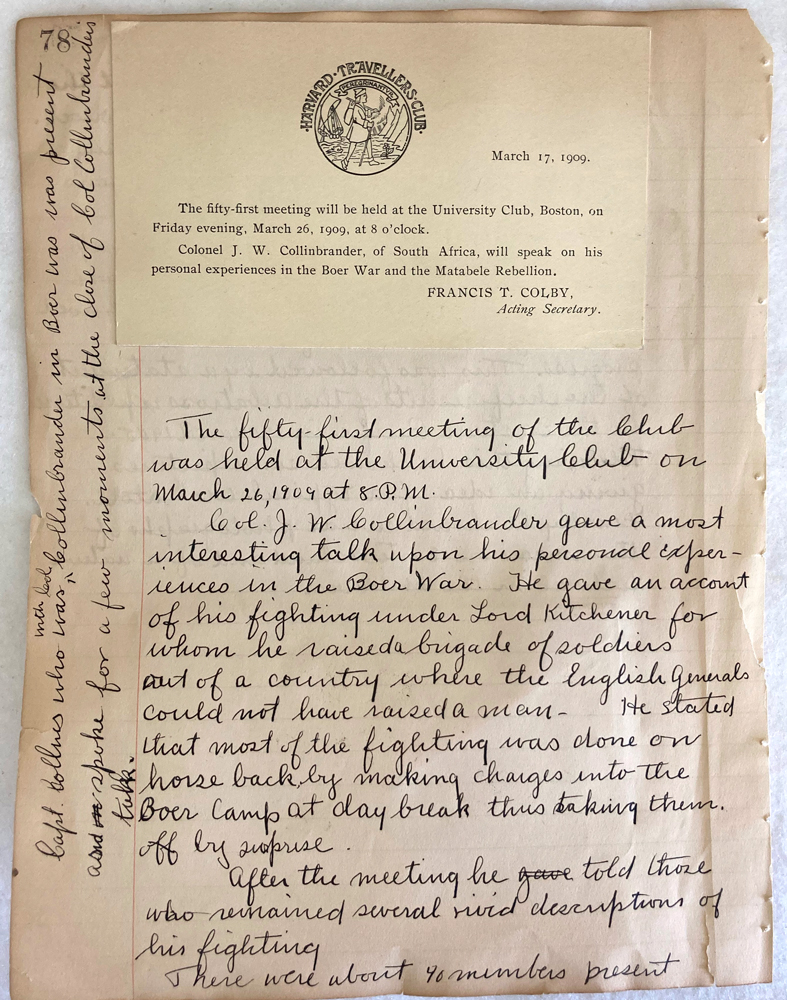 78
HARVARD·TRAVELLERS·CLUB·
March 17, 1909.
The fifty-first meeting will be held at the University Club, Boston, on
Friday evening, March 26, 1909, at 8 o'clock.
Colonel J. W. Collinbrander, of South Africa, will speak on his
personal experiences in the Boer War and the Matabele Rebellion.
FRANCIS T. COLBY,
Acting Secretary.
The fifty-first meeting of the Club
was held at the University Club on
March 26, 1909 at 8. P.M.
Col. J. W. Collinbrander gave a most
interesting talk upon his personal exper-
iences in the Boer War. He gave an account
of his fighting under Lord Kitchener for
whom he raised a brigade of soldiers
out of a country where the English Generals
could not have raised a man - He stated
that most of the fighting was done on
horse back, by making charges into the
Boer Camp at day break thus taking them.
off by surprise.
After the meeting he gave told those
who remained several vivid descriptions of
his fighting
There were about 40 members present
Capt. who was with Col. Collinbrander in Boer was was present
and spoke for a few moments at the close of Col Collinbranders
talk.